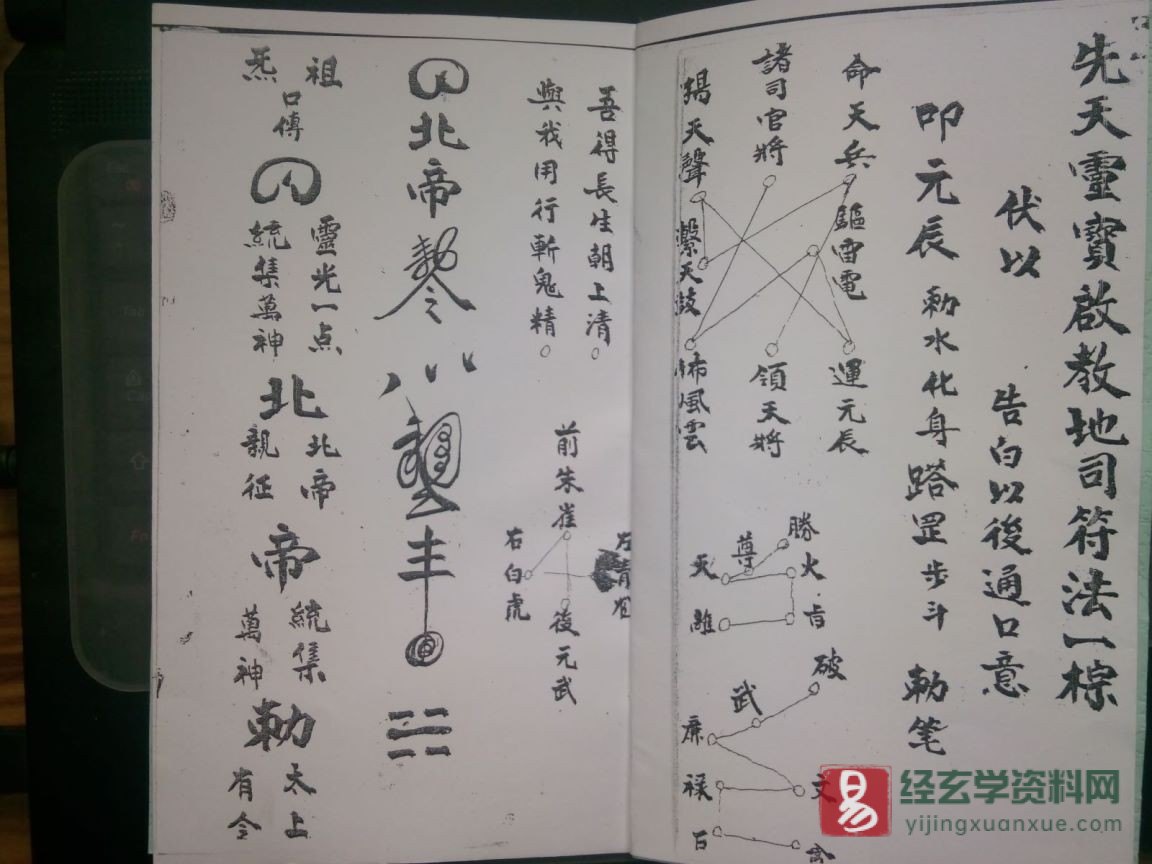 先天靈寳啟教地司符法一棕
伏以
告白以後通口意
叩元辰
勅水化身
踏罡步斗
勅笔
命天兵
驅雷電
運元辰
諸司官將
領天將
揚天聲
繫天鼓
佈風雲
勝
尊
火
天
破
武
廉
文
禄
吾得長生朝上清
與我用行斬鬼精
前朱雀
右白虎
後元武
北帝
祖
炁
口傳
靈光一点
統集萬神
北
北帝
親征
帝
統集
萬神
勅
太上
有令
易
经玄学资料网
yijingxuanxue.com